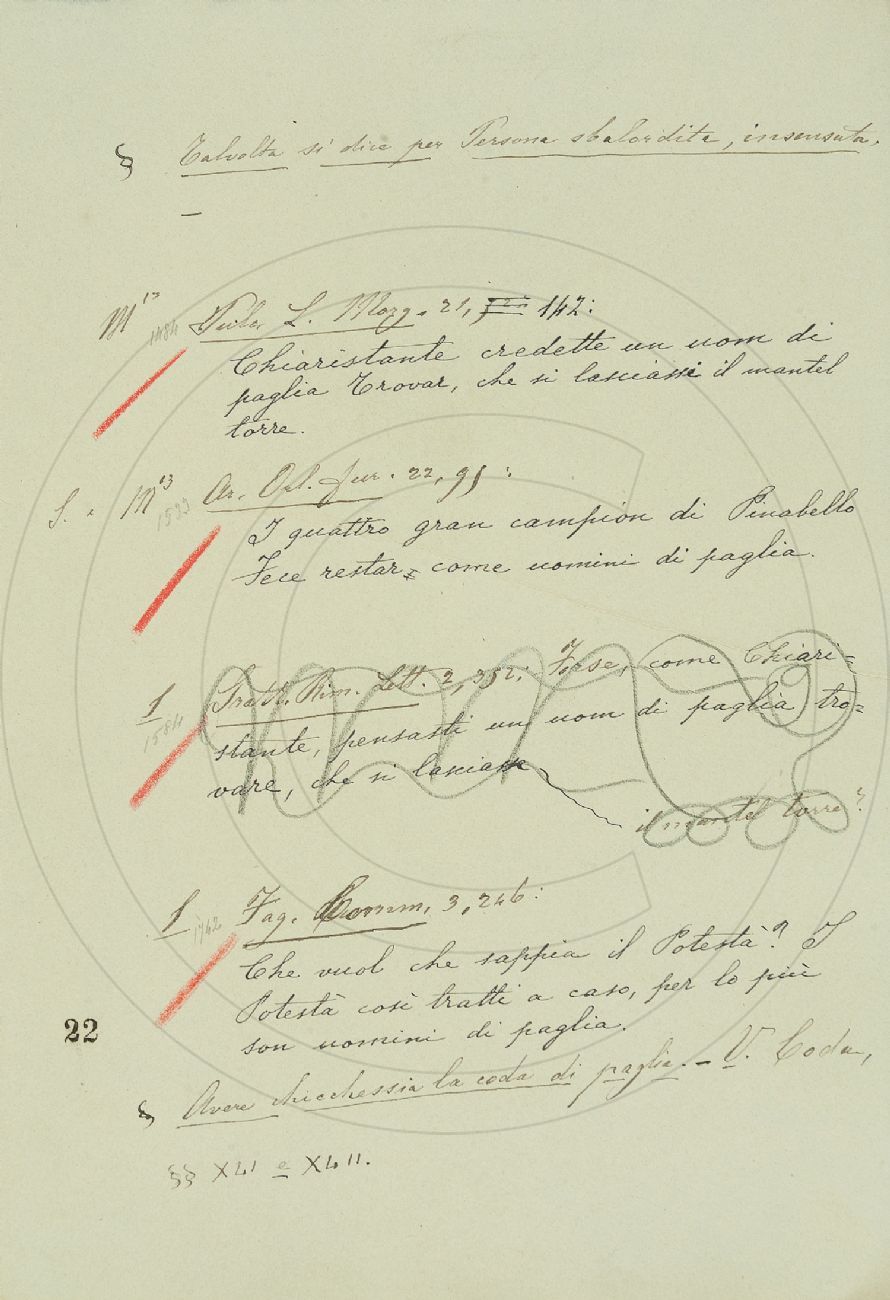 § Talvolta si dice per Persona sbalordita, insensata.
—
M¹² 1484 Pulc. L. Morg. 21, 142:
Chiaristante credette un uom di
paglia trovar, che si lasciassi il mantel
torre.
S. M¹³ 1532 Ar. Orl. Fur. 22, 91:
I quattro gran campion di Pinabello
Fece restar come uomini di paglia.
1 1584 Pratt. Rim. Lett. 2, 352: Forse, come Chiari-
stante, pensasti un uom di paglia tro-
vare, che si lasciasse
il mantel torre?
1 1742 Fag. Comm. 3, 246:
Che vuol che sappia il Potestà? I
Potestà così tratti a caso, per lo più
son uomini di paglia.
22
§ Avere chicchessia la coda di paglia. – V. Coda,
§§ XLI e XLII.